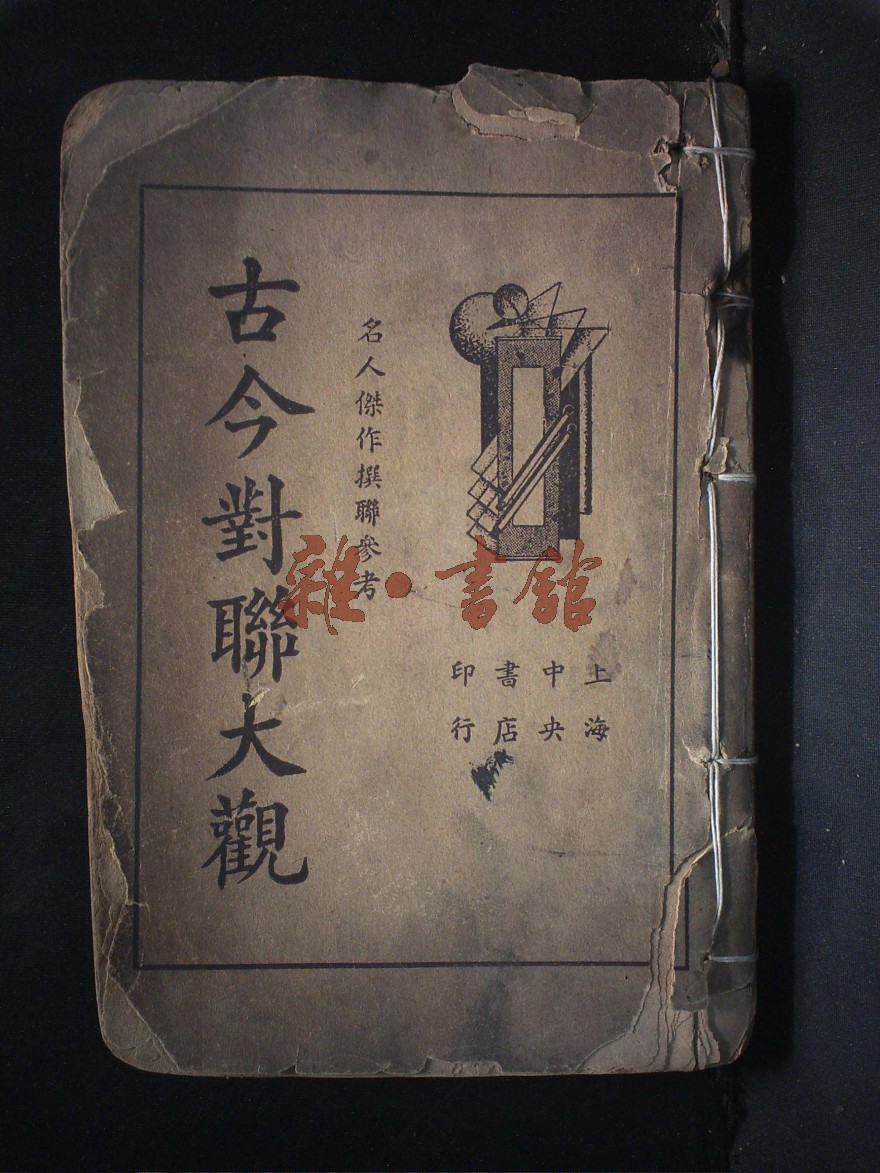 上海
中央
書店
印行
名人傑作撰聯參考
古今對聯大觀
雜·書館